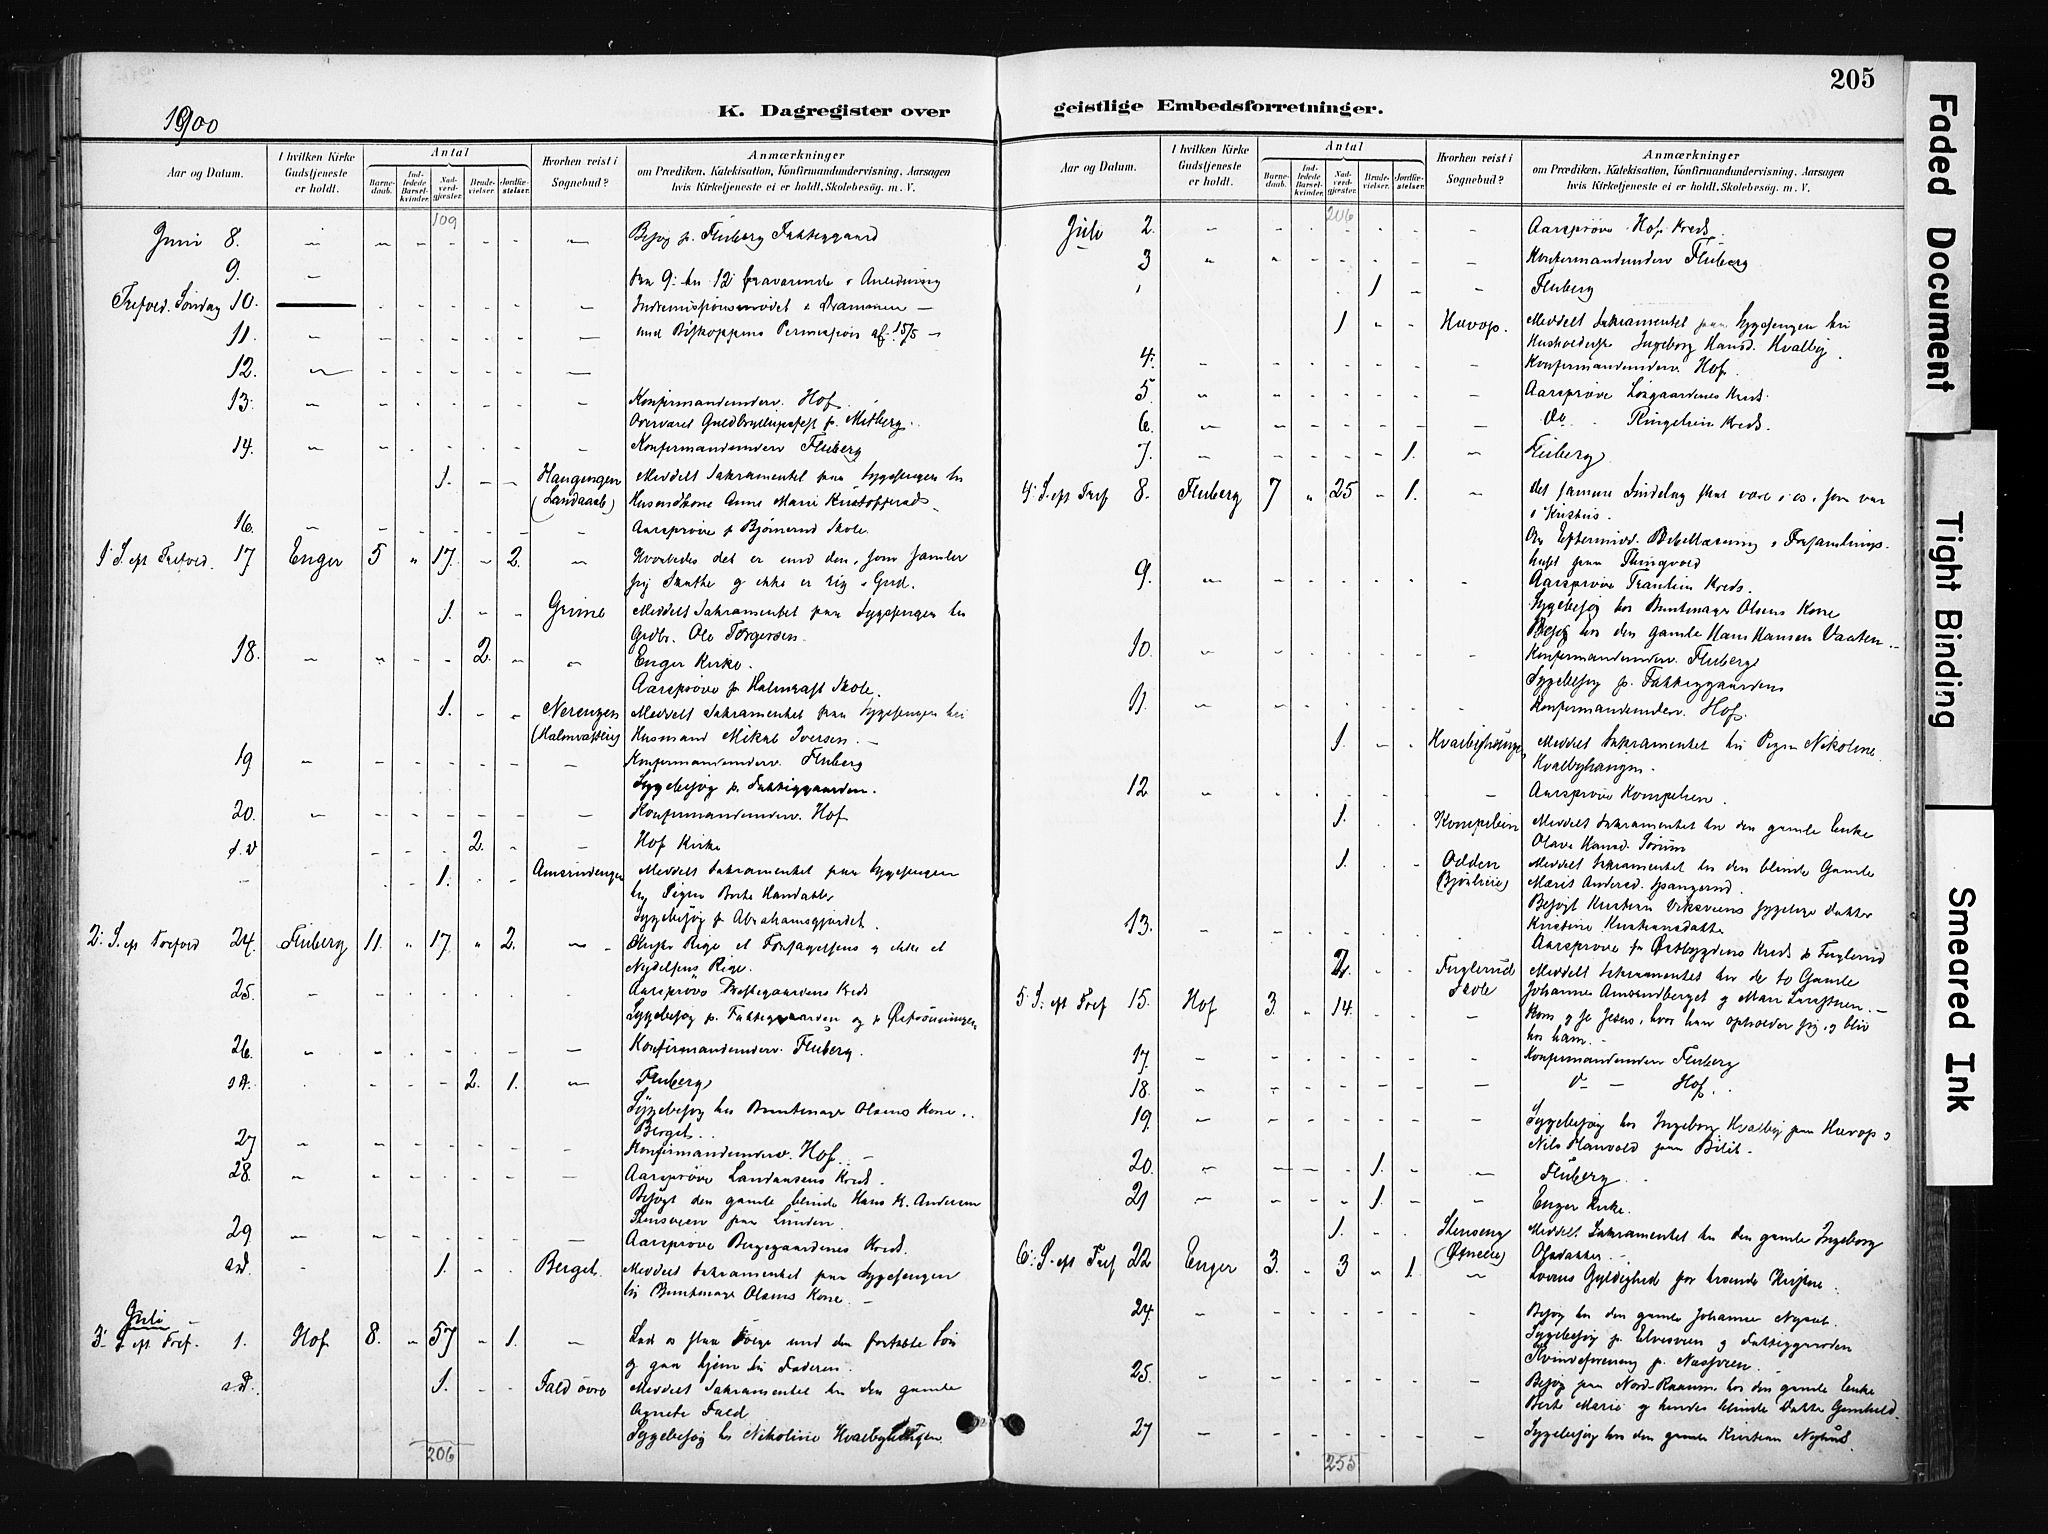 1900
K. Dagregister over
Aar og Datum.
I hvilken Kirke Gudstjeneste er holdt.
Antal
Barnedaab.
Indledede Barselkvinder.
Nadverdgjester.
Brudevielser.
Jordfæstelser.
Hvorhen reist i Sognebud?
Anmærkninger
om Prædiken, Katekisation, Konfirmandundervisning, Aarsagen
hvis Kirketjeneste ei er holdt, Skolebesøg. m. V.
109
Juni 8. Besøg p. Fluberg Fattiggaard
9. Fra 9: til 12: fraværende i Anledning
Trefold. Søndag 10. Indremissionsmødet i Drammen
11. med Biskoppens Permission af 15/5
12.
13. Konfirmandunderv. Hof.
Overværet Guldbryllupsfest p. Midberg.
14. Konfirmandunderv Fluberg
1. Haugengen Meddelt Sakramentet paa Sygesengen til
(Landaasb) Husmandskone Anne Marie Kristoffersd.
16. Aarsprøve p Bjørnerud Skole.
1: S. eft Trefold. 17 Enger 5 " 17. 2. Hvorledes det er med den, som samler
sig Skatte og ikke er rig i Gud.
1. Grime Meddelt Sakramentet paa Sygesengen til
Grdbr. Ole Torgersen.
18. 2. Enger Kirke.
Aarsprøve p Halmrast Skole.
1. Nerengen Meddelt Sakramentet paa Sygesengen til
Husmand Mikal Iversen.
19 Konfirmandunderv. Fluberg
Sygebesøg p. Fattiggaarden.
20. Konfirmandunderv. Hof
2. Hof Kirke
1. Amsrudengen Meddelt Sakramentet paa Sygesengen
Sygebesøg p Abrahamsgjordet.
2: S. eft Trefold 24. Fluberg 11. " 17. " 2. Rige et Forsagelsens og ikke et
Nydelsens Rige.
25. Aarsprøve Prestegaardens Kreds
Sygebesøg p. Fattiggaarden og p
26. Konfirmandunderv. Fluberg.
s.D. 2. 1. Fluberg
Sygebesøg hos Buntmager Olsens Kone
Berget.
27 Konfirmandunderv. Hof.
28. Aarsprøve Landaasens Kreds.
Besøgt den gamle blinde Hans K. Andersen
paa Lunden.
29 Aarsprøve Kreds.
s.D. 1. Berget. Meddelt Sakramentet paa Sygesengen
til Buntmager Olsens Kone.
Juli
3: S. eft Tref. 1. Hof 8. " 57 1. Lad os slaa Følge med den fortabte Søn
og gaa hjem til Faderen.
s.D. 1. Fald øvre Meddelt Sakramentet til den gamle
Agnete Fald
Sygebesøg hos Nikoline Hvalbyhaugen.
206
205
geistlige Embedsforretninger.
Aar og Datum.
I hvilken Kirke Gudstjeneste er holdt.
Antal
Barnedaab.
Indledede Barselkvinder.
Nadverdgjester.
Brudevielser.
Jordfæstelser.
Hvorhen reist i Sognebud?
Anmærkninger
om Prædiken, Katekisation, Konfirmandundervisning, Aarsagen
hvis Kirketjeneste ei er holdt, Skolebesøg. m. V.
206
Juli 2. Aarsprøve Hof Kreds.
3 Konfirmandunderv Fluberg
1 Fluberg
1 Hævop. Meddelt Sakramentet paa Sygesengen til
Ingeborg Hansd. Hvalby.
4. Konfirmandunderv. Hof
5. Aarsprøve Kreds.
6. Do Ringelien Kreds.
7. 1. Fluberg
4: S. eft Tref 8. Fluberg 7 " 25 1. Det samme Sindelag skal være i os, som var
i Kristus.
Om Eftermidd. Bibellæsning i Forsamlings-
huset paa Thingvold
9. Aarsprøve Kreds.
Sygebesøg hos Buntmager Olsens Kone
Besøg hos den gamle Hans Hansen
10. Konfirmandunderv. Fluberg
Sygebesøg p. Fattiggaarden
11. Konfirmandunderv. Hof.
1. Hvalbyhaugen Meddelt Sakramentet til Pigen Nikoline
Hvalbyhaugen.
12 Aarsprøve Kompelien.
1. Kompelien Meddelt Sakramentet til den gamle Enke
Olave Hansd.
1. Odden Meddelt Sakramentet til den blinde Gamle
Spangerud.
13. Besøgt Kristian sygelige Datter
Kristine Kristiansdatter
Aarsprøve for Østbygdens Kreds p Fuglerud
2. Fuglerud Skole Meddelt Sakramentet til de to Gamle
Johannes Amsrudberget og Mari
5: S. eft Tref 15. Hof 3. " 14. Kom og se Jesus, hvor han opholder sig, og bliv
hos ham.
17. Konfirmandunderv Fluberg
18. Hof.
19. Sygebesøg hos Ingeborg Hvalby paa Hævop
Nils paa Bilit.
20. 1. Fluberg.
21 1. Enger Kirke.
1. Stenseng Meddelt Sakramentet til den gamle Ingeborg
Olsdatter.
6: S. eft Tref 22 Enger 3. 3 1. Lovens Gyldighed for troende Kristne.
24. Besøg hos den gamle Johannes
Sygebesøg p. og Fattiggaarden
Kvindeforening p.
25. Besøg paa hos den gamle Enke
Berte Marie og hendes blinde Datter Gunhild.
27 Sygebesøg hos den gamle Kristian Nyhus.
255
Faded Document
Tight Binding
Smeared Ink